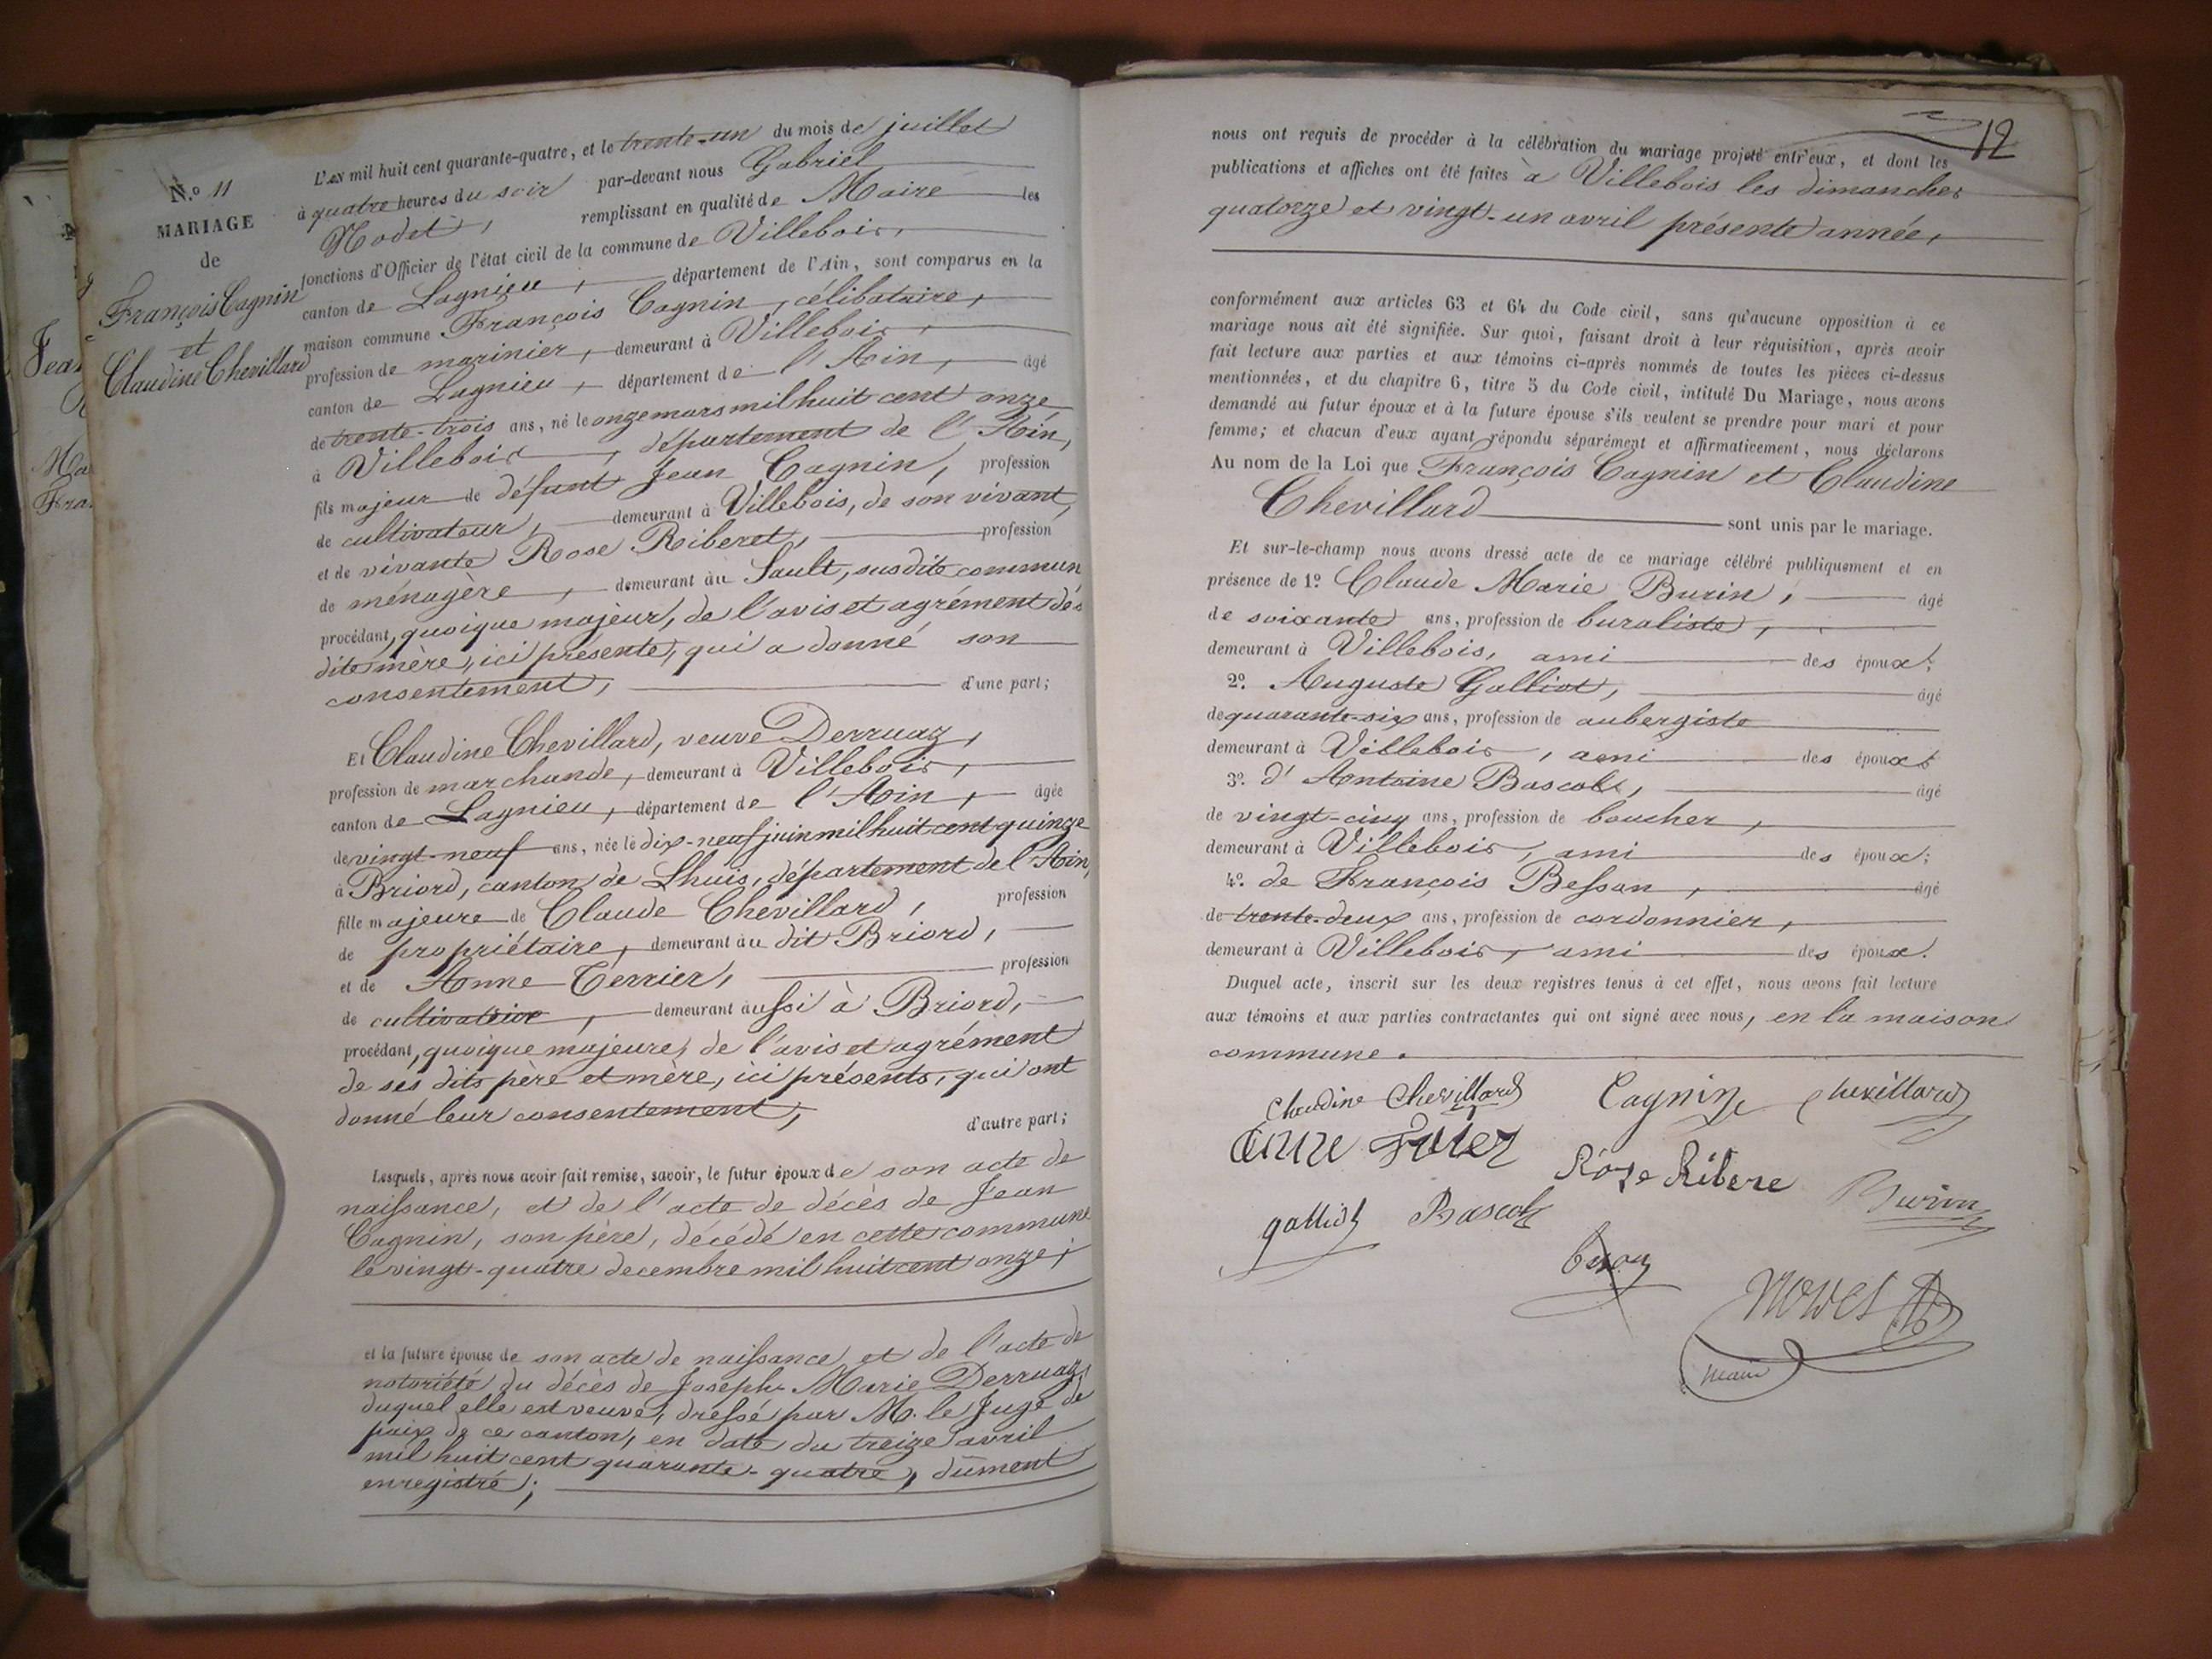 N.º 11
MARIAGE
de
François Cagnin
et
Claudine Chevillard
L'AN mil huit cent quarante-quatre, et le trente-un du mois de juillet
à quatre heures du soir par-devant nous Gabriel
Nodet, remplissant en qualité de Maire les
fonctions d'Officier de l'état civil de la commune de Villebois,
canton de Lagnieu, département de l'Ain, sont comparus en la
maison commune François Cagnin, célibataire,
profession de marinier, demeurant à Villebois,
canton de Lagnieu, département de l'Ain, âgé
de trente-trois ans, né le onze mars mil huit cent onze
à Villebois, département de l'Ain,
fils majeur de défunt Jean Cagnin, profession
de cultivateur, demeurant à Villebois, de son vivant,
et de vivante Rose Riberet, profession
de ménagère, demeurant au Sault, susdite commun
procédant, quoique majeur, de l'avis et agrément dès
dite mère, ici présente, qui a donné son
consentement, d'une part;
Et Claudine Chevillard, veuve Derruaz,
profession de marchande, demeurant à Villebois,
canton de Lagnieu, département de l'Ain, âgée
de vingt-neuf ans, née le dix-neuf juin mil huit cent quinze
à Briord, canton de Lhuis, département de l'Ain,
fille majeure de Claude Chevillard, profession
de propriétaire, demeurant au dit Briord,
et de Anne Terrier, profession
de cultivatrice, demeurant aussi à Briord,
procédant, quoique majeure, de l'avis et agrément
de ses dits père et mère, ici présents, qui ont
donné leur consentement, d'autre part;
Lesquels, après nous avoir fait remise, savoir, le futur époux de son acte de
naissance, et de l'acte de décès de Jean
Cagnin, son père, décédé en cette commune
le vingt-quatre decembre mil huit cent onze;
et la future épouse de son acte de naissance et de l'acte de
notoriété du décès de Joseph-Marie Derruaz,
duquel elle est veuve, dressé par M. le Juge de
paix de ce canton, en date du treize avril
mil huit cent quarante-quatre, dûment
enregistré;
12
nous ont requis de procéder à la célébration du mariage projeté entr'eux, et dont les
publications et affiches ont été faites à Villebois les dimanches
quatorze et vingt-un avril présente année,
conformément aux articles 63 et 64 du Code civil, sans qu'aucune opposition à ce
mariage nous ait été signifiée. Sur quoi, faisant droit à leur réquisition, après avoir
fait lecture aux parties et aux témoins ci-après nommés de toutes les pièces ci-dessus
mentionnées, et du chapitre 6, titre 5 du Code civil, intitulé Du Mariage, nous avons
demandé au futur époux et à la future épouse s'ils veulent se prendre pour mari et pour
femme; et chacun d'eux ayant répondu séparément et affirmativement, nous déclarons
Au nom de la Loi que François Cagnin et Claudine
Chevillard sont unis par le mariage.
Et sur-le-champ nous avons dressé acte de ce mariage célébré publiquement et en
présence de 1º Claude Marie Burin, âgé
de soixante ans, profession de buraliste,
demeurant à Villebois, ami des époux;
2º. Auguste Galliot, âgé
de quarante-six ans, profession de aubergiste
demeurant à Villebois, ami des époux;
3º. d'Antoine Bascolz, âgé
de vingt-cinq ans, profession de boucher,
demeurant à Villebois, ami des époux;
4º. de François Besson, âgé
de trente-deux ans, profession de cordonnier,
demeurant à Villebois, ami des époux.
Duquel acte, inscrit sur les deux registres tenus à cet effet, nous avons fait lecture
aux témoins et aux parties contractantes qui ont signé avec nous, en la maison
commune.
Claudine Chevillard Cagnin Chevillard
Anne
Roze Ribere Burin
galliot Bascolz
Nodet
maire